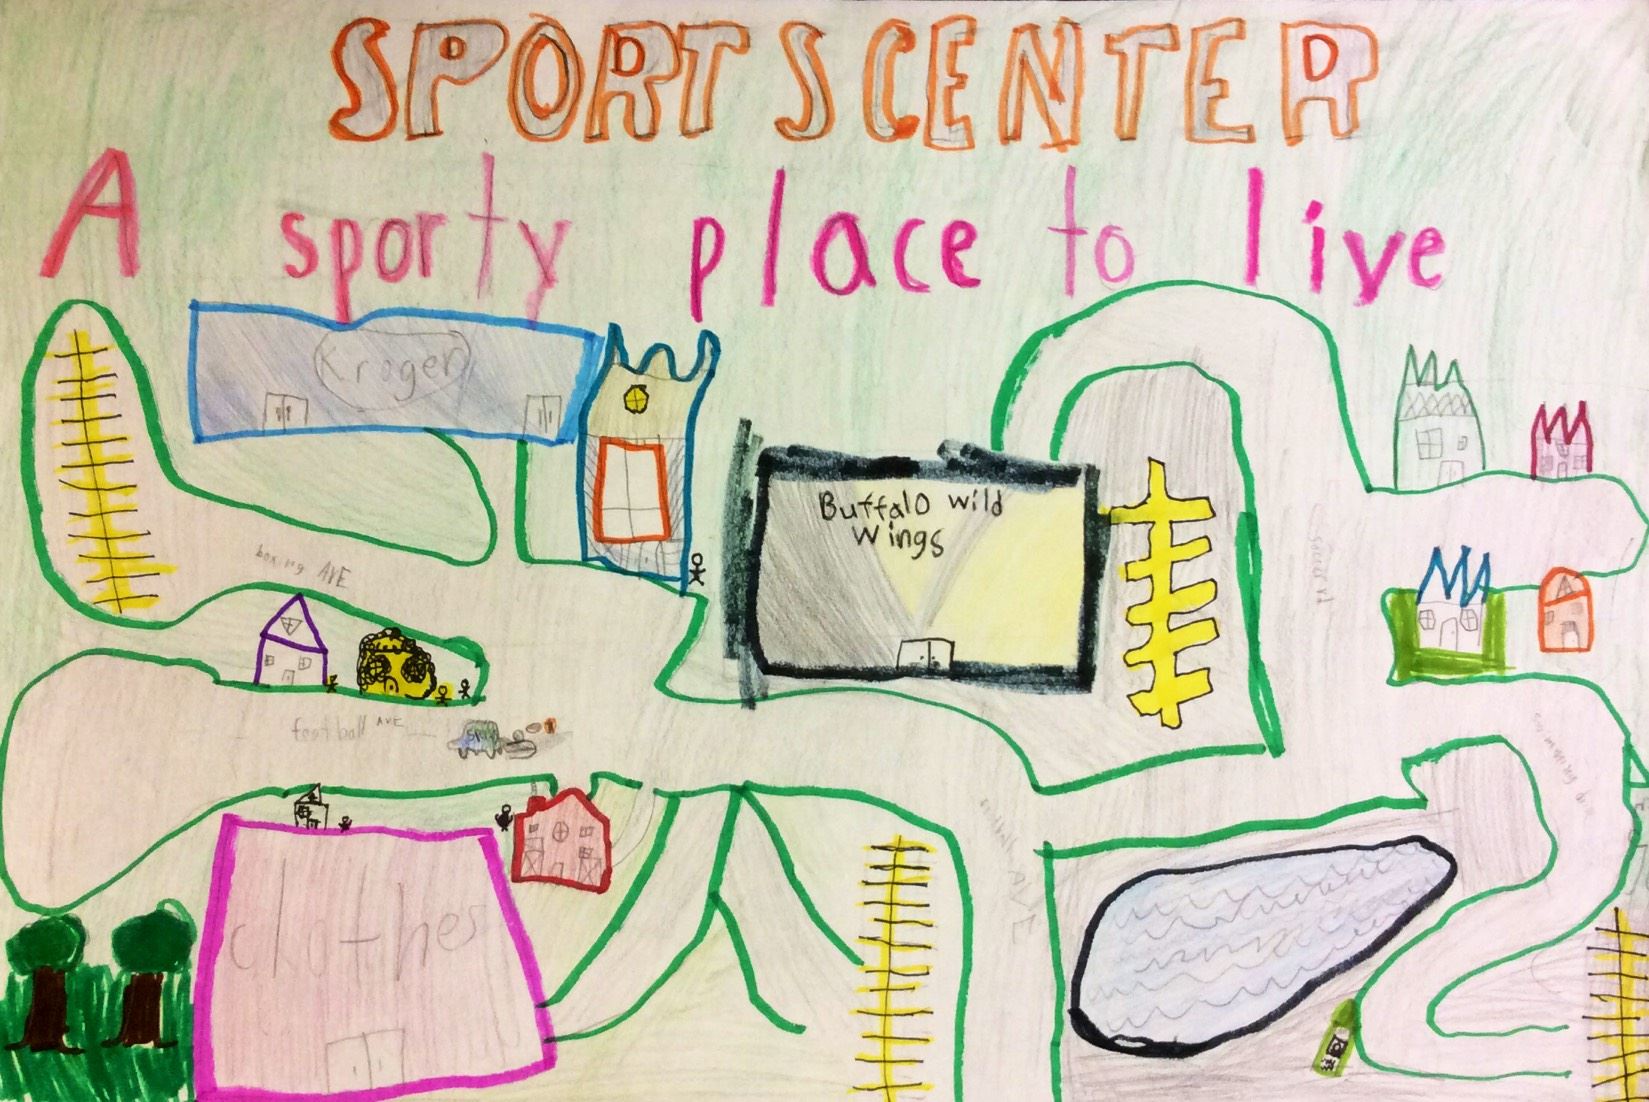 SPORTSCENTER
A sporty place to live
Kroger
Buffalo wild
Wings
boxing AVE
soccer rd
football AVE
clothes